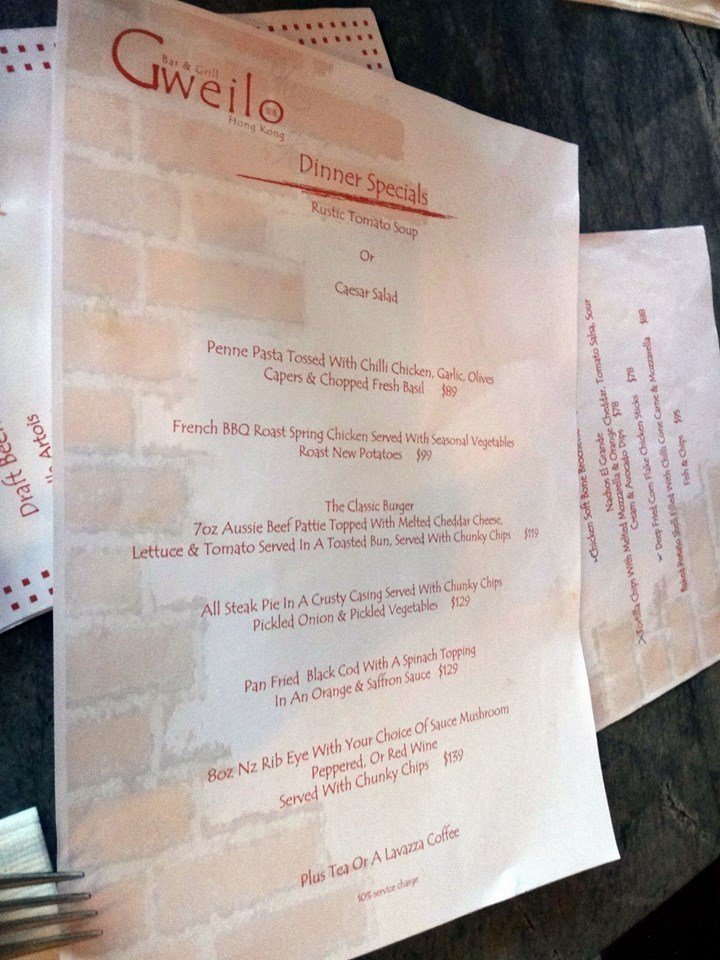 Bar & Grill
Gweilo
Hong Kong
Dinner Specials
Rustic Tomato Soup
Or
Caesar Salad
Penne Pasta Tossed With Chilli Chicken, Garlic, Olives
Capers & Chopped Fresh Basil $89
French BBQ Roast Spring Chicken Served With Seasonal Vegetables
Roast New Potatoes $99
The Classic Burger
7oz Aussie Beef Pattie Topped With Melted Cheddar Cheese,
Lettuce & Tomato Served In A Toasted Bun, Served With Chunky Chips $119
All Steak Pie In A Crusty Casing Served With Chunky Chips
Pickled Onion & Pickled Vegetables $129
Pan Fried Black Cod With A Spinach Topping
In An Orange & Saffron Sauce $129
8oz Nz Rib Eye With Your Choice Of Sauce Mushroom
Peppered, Or Red Wine
Served With Chunky Chips $139
Plus Tea Or A Lavazza Coffee
10% service charge
Draft Beer
Artois
Chicken Soft Bone
Nachos El Grande
Tortilla Chips With Melted Mozzarella & Orange Cheddar, Tomato Salsa, Sour
Cream & Avocado Dips $78
Deep Fried Corn Flake Chicken Sticks $78
Baked Potato Shell Filled With Chilli Corne Carne & Mozzarella $88
Fish & Chips $95